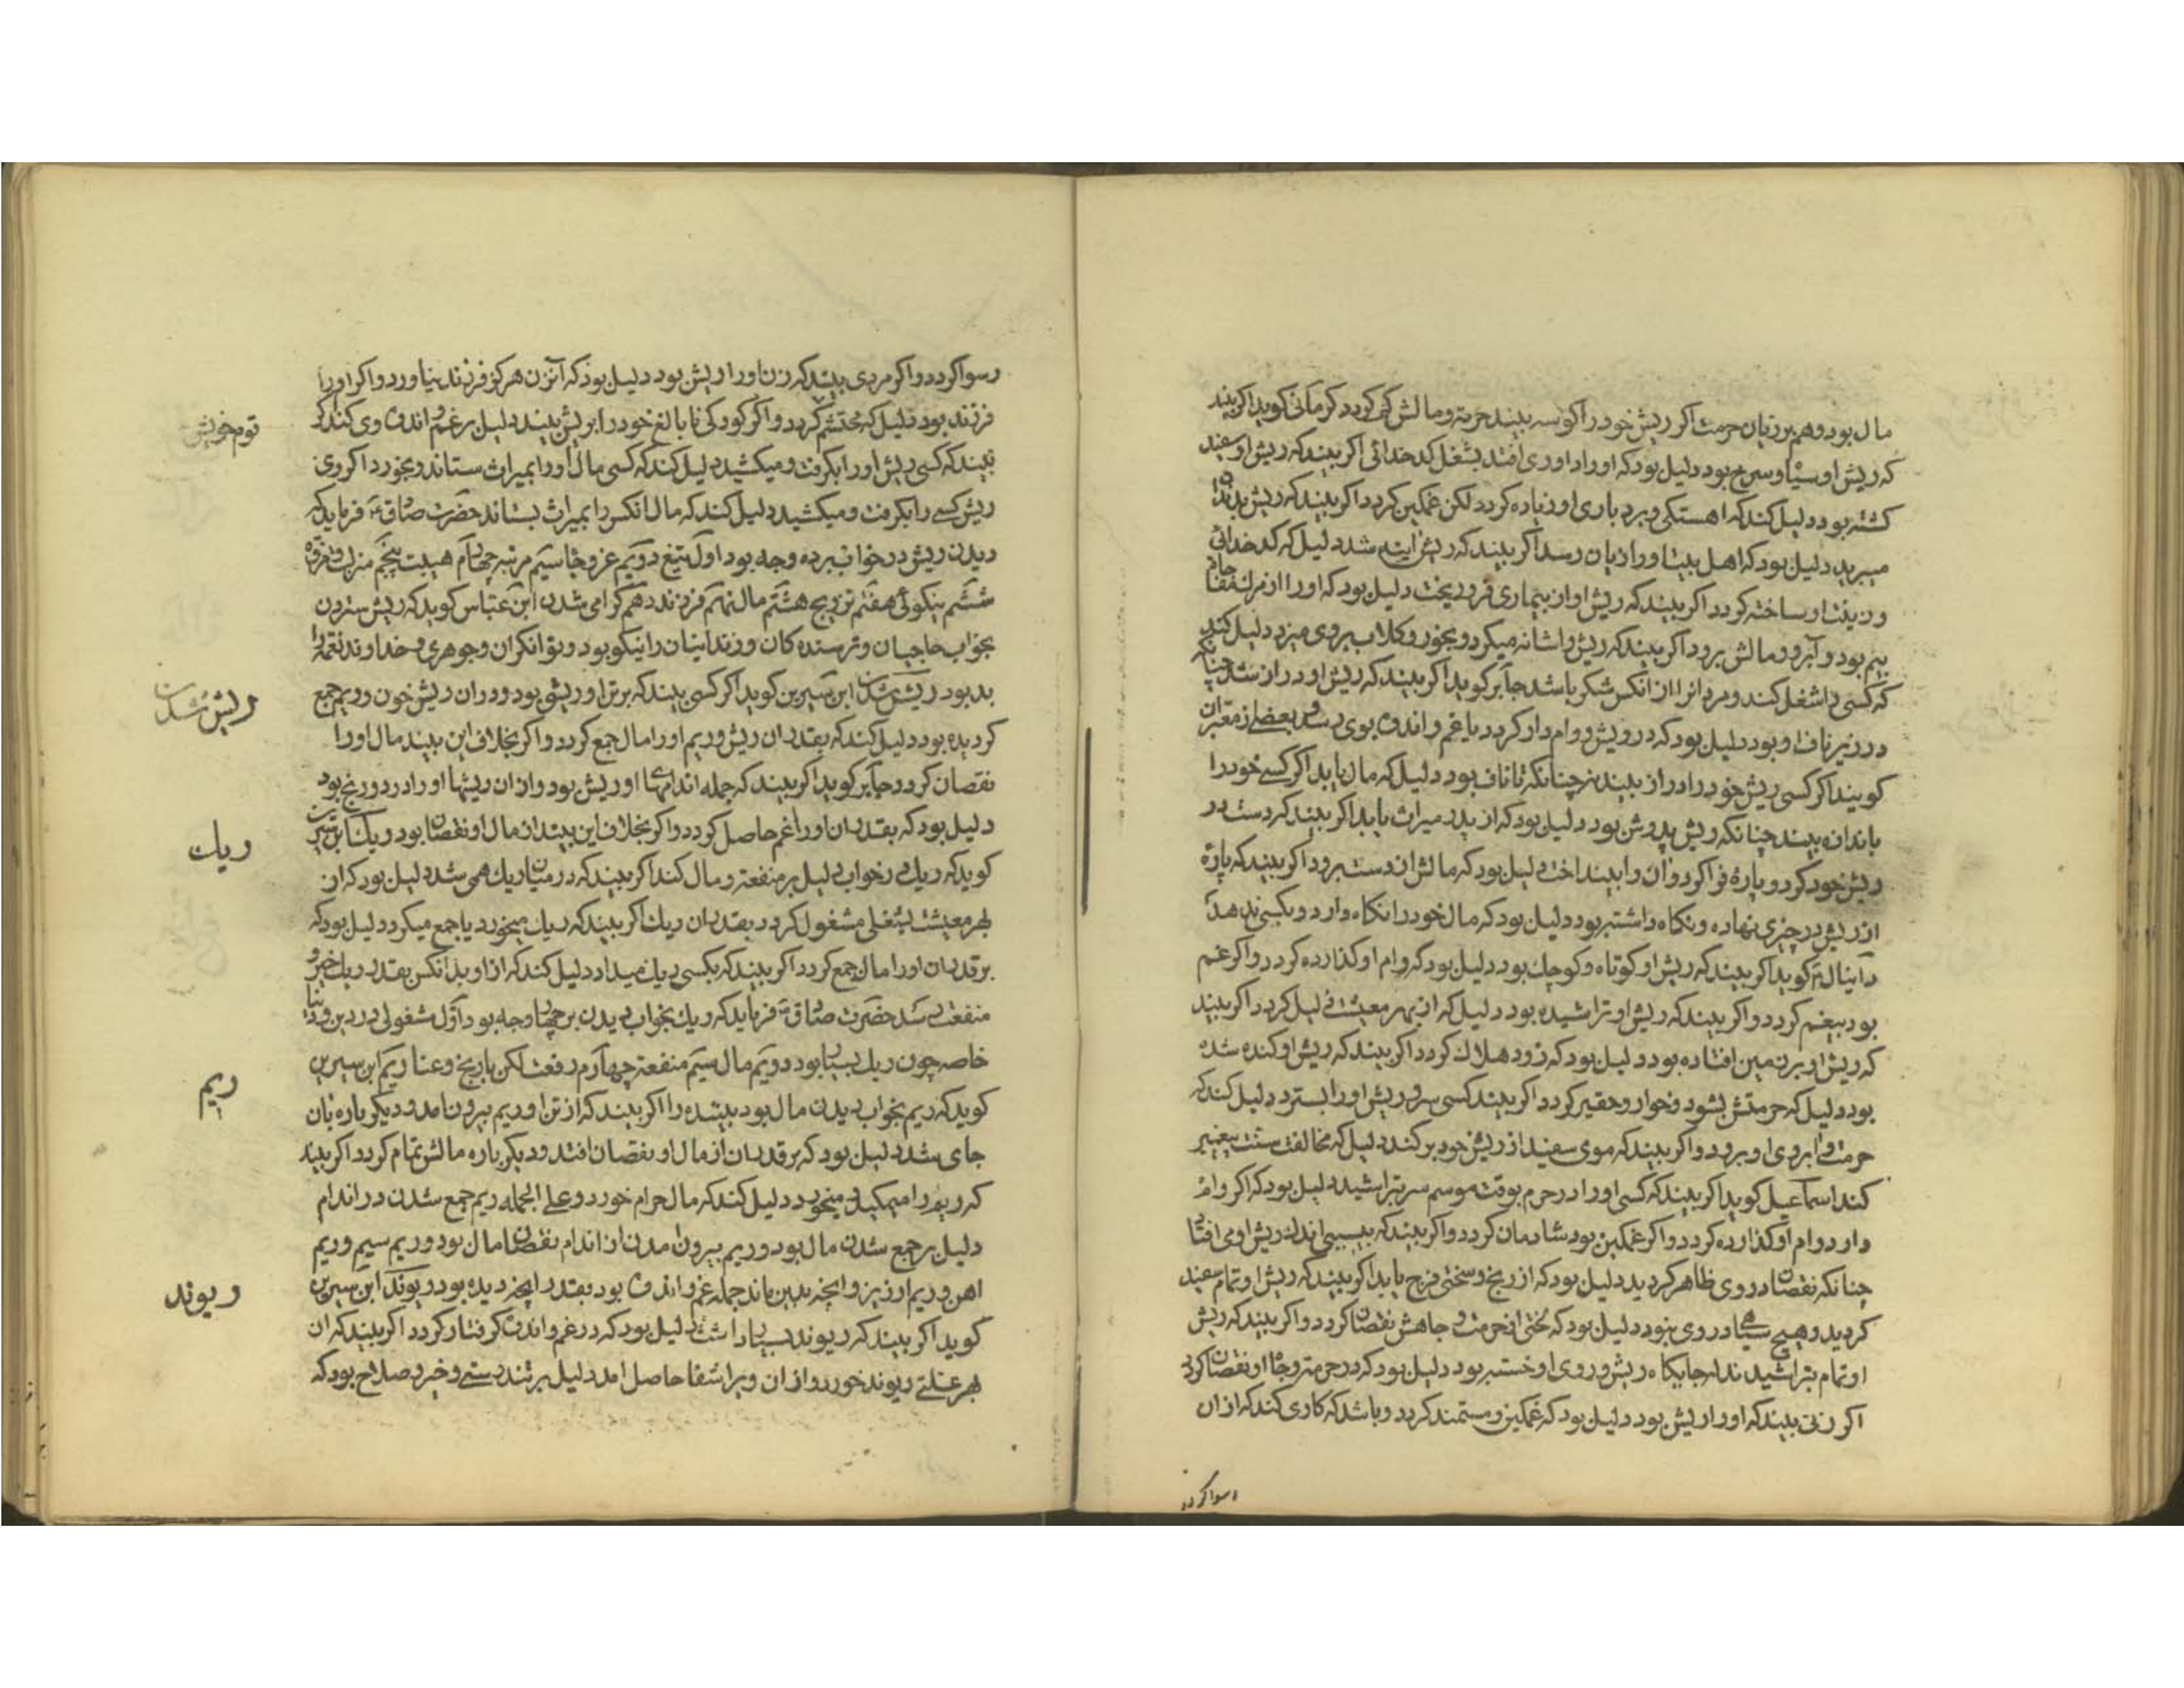 مال بود و هم بر زیان حرمت اگر ریش خود را کوسه بیند حرمت و مالش کم گردد کرمانی گوید اگر بیند
که ریش او سیاه و سرخ بود دلیل بود که او را داوری افتد بشغل کدخدائی اگر بیند که ریش او سفید
کشته بود دلیل کند که اهستکی و بردباری او زیاده گردد لکن غمکین گردد اگر بیند که ریش بدندان
میبرید دلیل بود که اهل بیت او را زیان رسد اگر بیند که ریش شد دلیل که کدخدائی
و زینت او ساخته گردد اگر بیند که ریش او از بیماری فرو ریخت دلیل بود که او را از مرك مفاجاة
بیم بود و آبرو و مالش برود اگر بیند که ریش را شانه میکرد و بخور و کلاب بر وی میزد دلیل کند
که کسی را شغل کند و مر او را از انکس شکر باشد جابر گوید اگر بیند که ریش او دراز شد چنانکه
در زیر ناف او بود دلیل بود که درویش و وام دار گردد یا غم و اندوه بوی رسد و بعضی از معبران
گویند اگر کسی ریش خود را دراز بیند نه چنانکه تا ناف بود دلیل که مال یابد اگر کسی خود را
باندازه بیند چنانکه ریش پدرش بود دلیل بود که از پدر میراث یابد اگر بیند که دست در
ریش خود کرد و پارهٔ فرا گرد و ان را بینداخت دلیل بود که مالش از دست برود اگر بیند که پارهٔ
از ریش در چیزی نهاده و نگاه داشته بود دلیل بود که مال خود را نگاه دارد و بکسی ندهد
دانیال ع گوید اگر بیند که ریش او کوتاه و کوچك بود دلیل بود که وام او گذارده گردد و اگر غم
بود بیغم گردد و اگر بیند که ریش او تراشیده بود دلیل که از بهر معیشت ذلیل گردد اگر بیند
که ریش او بر زمین افتاده بود دلیل بود که زود هلاك گردد اگر بیند که ریش او کنده شده
بود دلیل که حرمتش بشود و خوار و حقیر گردد اگر بیند کسی سر و ریش او را بسترد دلیل کند که
حرمت و ابروی او برود و اگر بیند که موی سفید از ریش خود بر کند دلیل که مخالفت سنت پیغمبر
کند اسماعیل گوید اگر بیند که کسی او را در حرم بوقت موسم سر بتراشید دلیل بود که اگر وام
دارد وام او گذارده گردد و اگر غمکین بود شادمان گردد و اگر بیند که اندك ریش او می افتاد
چنانکه نقصان در وی ظاهر گردید دلیل بود که از رنج و سختی فرج یابد اگر بیند که ریش او تمام سفید
گردید و هیچ سیاهی در وی نبود دلیل بود که لختی از حرمت و جاهش نقصان گردد و اگر بیند که ریش
او تمام بتراشیدند اما جایکاه ریش و روی او خسته بود دلیل بود که در حرمت و جاه او نقصان گردد
اگر زنی بیند که او را ریش بود دلیل بود که غمکین و مستمند گردد و باشد که کاری کند که از ان
رسوا گردد
رسوا گردد و اگر مردی بیند که زن او را ریش بود دلیل بود که آنزن هرکز فرزند نیاورد و اگر او را
فرزند بود دلیل که محتشم گردد و اگر کودکی نابالغ خود را بریش بیند دلیل بر غم و اندوه وی کند اگر
بیند که کسی ریش او را بگرفت و میکشید دلیل کند که کسی مال او را بمیراث ستاند و بخورد اگر وی
ریش کسی را بگرفت و میکشید دلیل کند که مال انکس را بمیراث بستاند حضرت صادق ع فرماید که
دیدن ریش در خواب بر ده وجه بود اول دویم عز و جاه سیم مرتبه چهارم هیبت پنجم منزلت و
ششم نیکوئی هفتم تزویج هشتم مال نهم فرزند دهم گرامی شدن ابن عباس گوید که ریش ستردن
بخواب حاجیان و ترسنده کان و زندانیان را نیکو بود و توانکران و جوهری و خداوند نعمة را
بد بود ریش شدن ابن سیرین گوید اگر کسی بیند که بر تن او ریشی بود و در ان ریش خون و ریم جمع
گردیده بود دلیل کند که بقدر ان ریش و ریم او را مال جمع گردد و اگر بخلاف این بیند مال او را
نقصان گردد جابر گوید اگر بیند که جمله اندامهای او ریش بود و از ان ریشها او را درد و رنج بود
دلیل بود که بقدر ان او را غم حاصل گردد و اگر بخلاف این بیند از مال او نقصان بود ریك ابن سیرین
گوید که ریك در خواب دلیل بر منفعة و مال کند اگر بیند که در میان ریك همی شد دلیل بود که از
بهر معیشت بشغلی مشغول گردد بقدر ان ریك اگر بیند که ریك میخورد یا جمع میکرد دلیل بود که
بر قدر ان او را مال جمع گردد اگر بیند که بکسی ریك میداد دلیل کند که از او بدانکس بقدر ریك خیر و
منفعت رسد حضرت صادق ع فرماید که ریك بخواب دیدن بر چهار وجه بود اول مشغولی در دین و دنیا
خاصه چون ریك بسیار بود دویم مال سیم منفعة چهارم رفعت لکن با رنج و عنا ریم ابن سیرین
گوید که ریم بخواب دیدن مال بود بیننده را اگر بیند که از تن او ریم بیرون امد و دیکر باره بان
جای شد دلیل بود که بر قدر ان از مال او نقصان افتد و دیکر باره مالش تمام گردد اگر بیند
که ریم را میمکید و میخورد دلیل کند که مال حرام خورد و علی الجمله ریم جمع شدن در اندام
دلیل بر جمع شدن مال بود و ریم بیرون امدن از اندام نقصان مال بود و ریم سیم و ریم
اهن و ریم ارزیز و انچه بدین ماند جمله غم و اندوه بود بقدر انچه دیده بود ریوند ابن سیرین
گوید اگر بیند که ریوند بسیار داشت دلیل بود که در غم و اندوه گرفتار گردد اگر بیند که ان
بهر علتی ریوند خورد و از ان ویرا شفا حاصل امد دلیل بر تندرستی و خیر و صلاح بود که
ریش شدن
ریك
ریم
ریوند